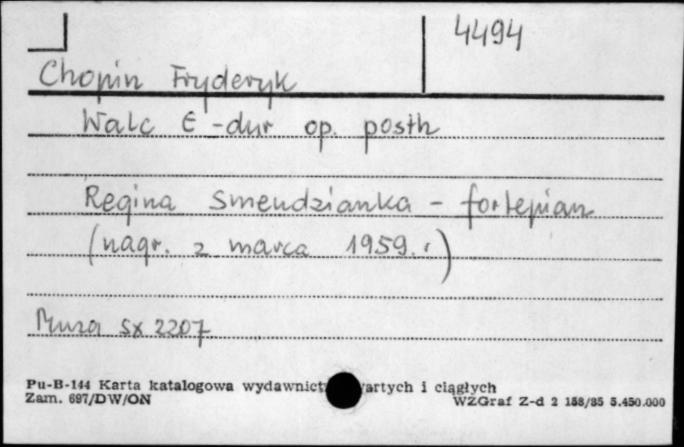 4494
Chopin Fryderyk
Walc E-dur op. posth
Regina Smendzianka - fortepian
(nagr. z marca 1959.r)
Muza SX 2207
Pu-B-144 Karta katalogowa wydawnict artych i ciągłych
Zam. 697/DW/ON
WZGraf Z-d 2 158/85 5.450.000